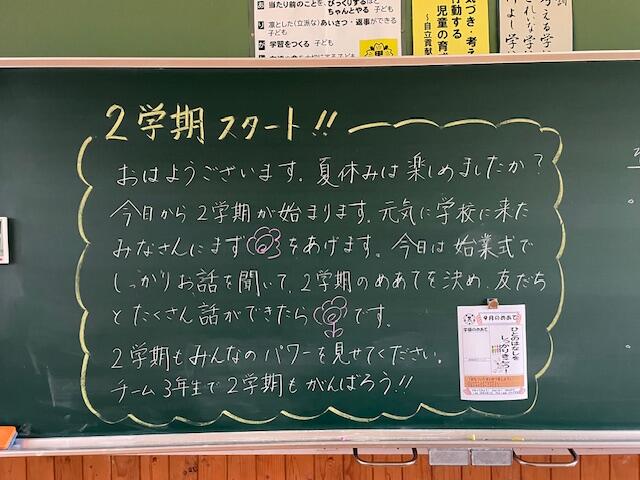 当たり前のことを、びっくりするほど
ちゃんとやる 子ども
り 凛とした(立派な)あいさつ・返事ができる
子ども
が 学習をつくる 子ども
気づき・考え
行動する
児童の育成
～自立貢献
2学期スタート!!
おはようございます。夏休みは楽しめましたか?
今日から2学期が始まります。元気に学校に来た
みなさんにまず をあげます。今日は始業式で
しっかりお話を聞いて、2学期のめあてを決め、友だち
とたくさん話ができたら です。
2学期もみんなのパワーを見せてください。
チーム3年生で2学期もがんばろう!!
9月のめあて
学級のめあて
ひとのはなしを
しっかりきこう!